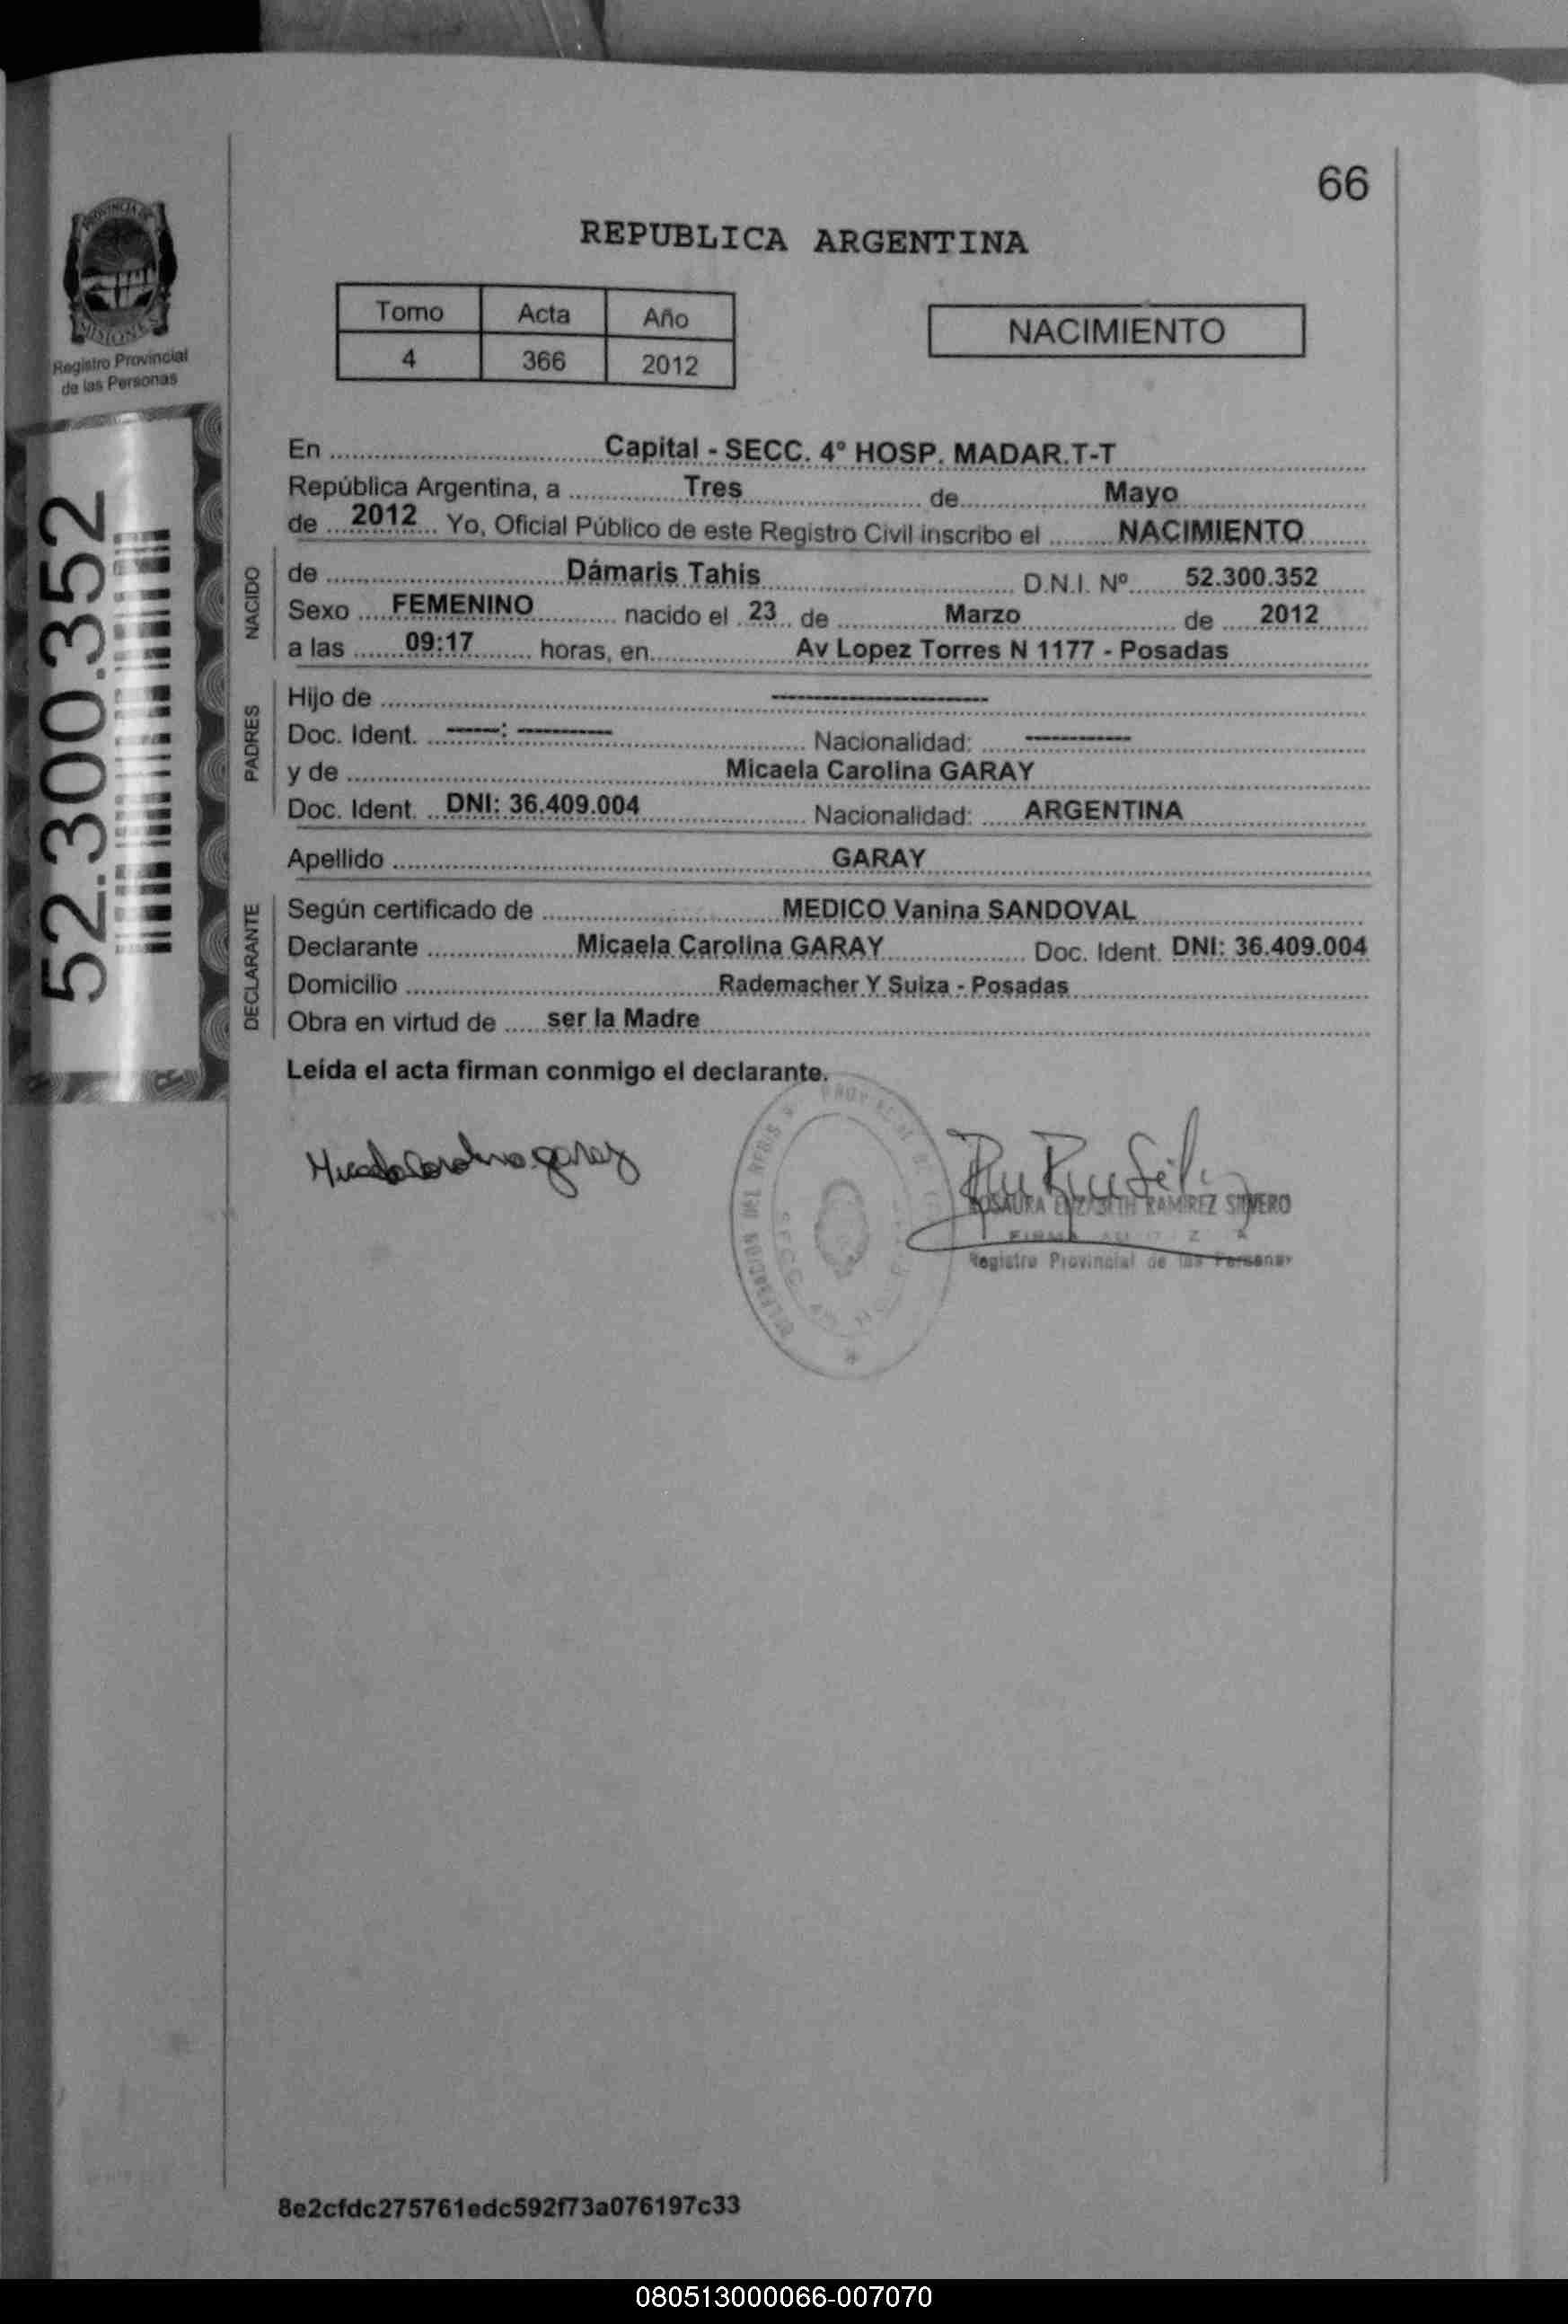 66
PROVINCIA DE
MISIONES
Registro Provincial
de las Personas
REPUBLICA ARGENTINA
Tomo Acta Año
4 366 2012
NACIMIENTO
52.300.352
En Capital - SECC. 4º HOSP. MADAR.T-T
República Argentina, a Tres de Mayo
de 2012 Yo, Oficial Público de este Registro Civil inscribo el NACIMIENTO
NACIDO
de Dámaris Tahis D.N.I. Nº 52.300.352
Sexo FEMENINO nacido el 23 de Marzo de 2012
a las 09:17 horas, en Av Lopez Torres N 1177 - Posadas
PADRES
Hijo de --------------------
Doc. Ident. -----: --------- Nacionalidad: ----------
y de Micaela Carolina GARAY
Doc. Ident. DNI: 36.409.004 Nacionalidad: ARGENTINA
Apellido GARAY
DECLARANTE
Según certificado de MEDICO Vanina SANDOVAL
Declarante Micaela Carolina GARAY Doc. Ident. DNI: 36.409.004
Domicilio Rademacher Y Suiza - Posadas
Obra en virtud de ser la Madre
Leída el acta firman conmigo el declarante.
Micaela Carolina garay
ROSAURA ELIZABETH RAMIREZ SILVERO
FIRMA
Registro Provincial de las Personas
8e2cfdc275761edc592f73a076197c33
080513000066-007070